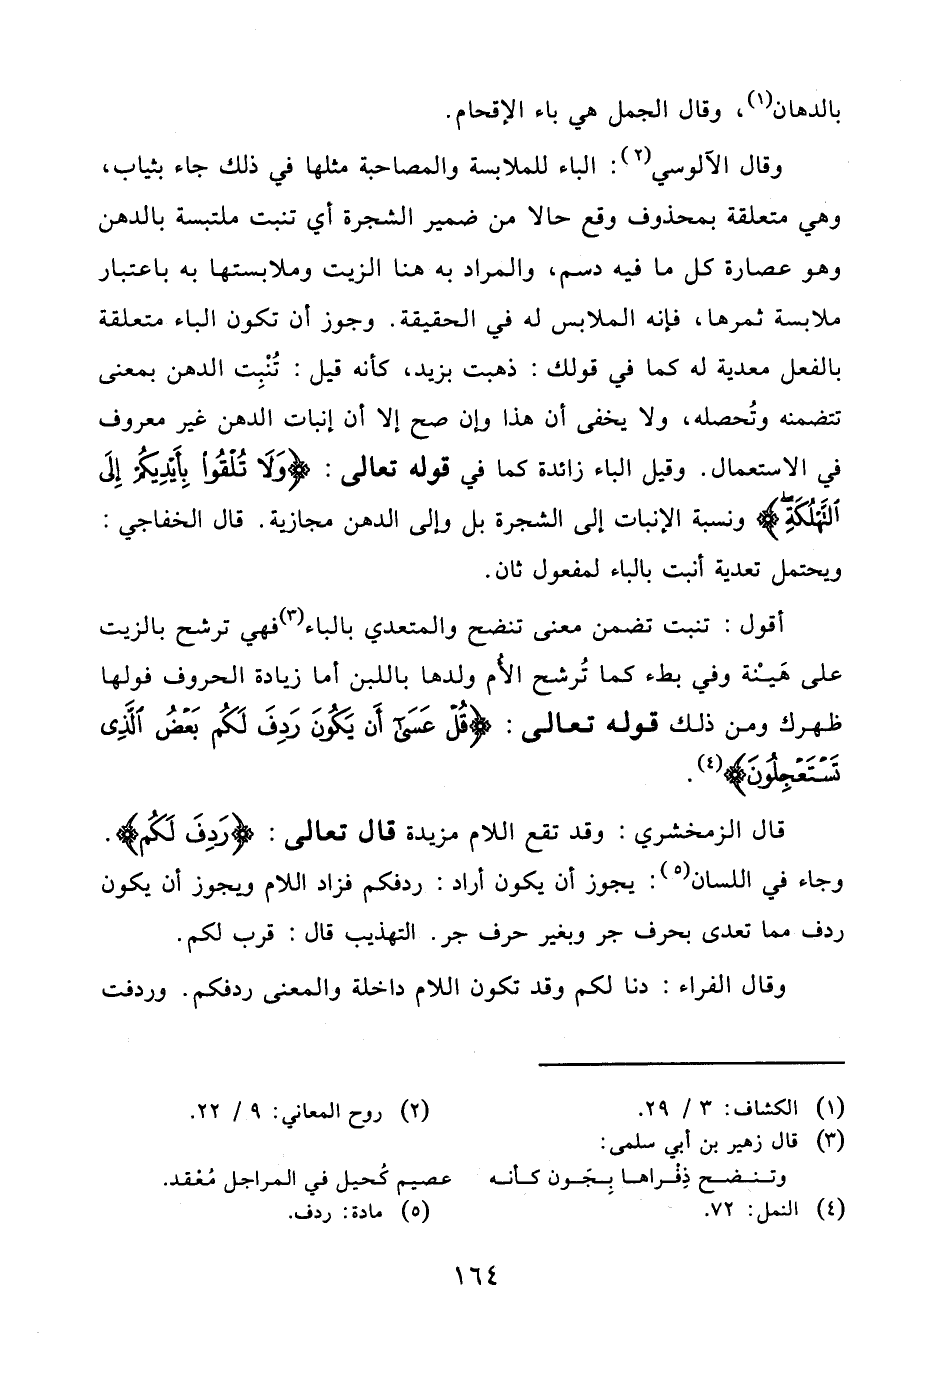 بالدهان(١)، وقال الجمل هي باء الإقحام.
وقال الآلوسي(٢): الباء للملابسة والمصاحبة مثلها في ذلك جاء بثياب،
وهي متعلقة بمحذوف وقع حالا من ضمير الشجرة أي تنبت ملتبسة بالدهن
وهو عصارة كل ما فيه دسم، والمراد به هنا الزيت وملابستها به باعتبار
ملابسة ثمرها، فإنه الملابس له في الحقيقة. وجوز أن تكون الباء متعلقة
بالفعل معدية له كما في قولك : ذهبت بزيد، كأنه قيل : تُنْبِت الدهن بمعنى
تتضمنه وتُحصله، ولا يخفى أن هذا وإن صح إلا أن إنبات الدهن غير معروف
في الاستعمال. وقيل الباء زائدة كما في قوله تعالى : ﴿وَلَا تُلْقُوا۟ بِأَيْدِيكُمْ إِلَى
ٱلتَّهْلُكَةِ﴾ ونسبة الإنبات إلى الشجرة بل وإلى الدهن مجازية. قال الخفاجي :
ويحتمل تعدية أنبت بالباء لمفعول ثان.
أقول : تنبت تضمن معنى تنضح والمتعدي بالباء(٣)فهي ترشح بالزيت
على هَيْنة وفي بطء كما تُرشح الأُم ولدها باللبن أما زيادة الحروف فولها
ظهرك ومن ذلك قوله تعالى : ﴿قُلْ عَسَىٰٓ أَن يَكُونَ رَدِفَ لَكُم بَعْضُ ٱلَّذِى
تَسْتَعْجِلُونَ﴾(٤).
قال الزمخشري : وقد تقع اللام مزيدة قال تعالى : ﴿رَدِفَ لَكُم﴾.
وجاء في اللسان(٥): يجوز أن يكون أراد : ردفكم فزاد اللام ويجوز أن يكون
ردف مما تعدى بحرف جر وبغير حرف جر. التهذيب قال : قرب لكم.
وقال الفراء : دنا لكم وقد تكون اللام داخلة والمعنى ردفكم. وردفت
(١) الكشاف: ٣ / ٢٩. (٢) روح المعاني: ٩ / ٢٢.
(٣) قال زهير بن أبي سلمى:
وتنضح ذِفْراها بِجَون كأنه عصيم كُحيل في المراجل مُعْقد.
(٤) النمل: ٧٢. (٥) مادة: ردف.
١٦٤